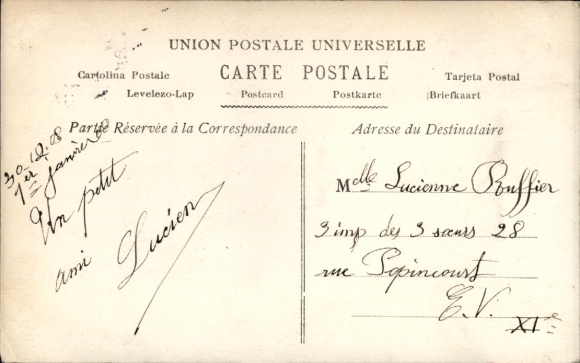 UNION POSTALE UNIVERSELLE
CARTE POSTALE
Cartolina Postale
Tarjeta Postal
Levelezo-Lap
Postcard
Postkarte
Briefkaart
Partie Réservée à la Correspondance
Adresse du Destinataire
30.12.08
1er janvier
Un petit
ami Lucien
Melle Lucienne Ruffier
3 imp des 3 sœurs 28
rue Popincourt
E.V.
XIe